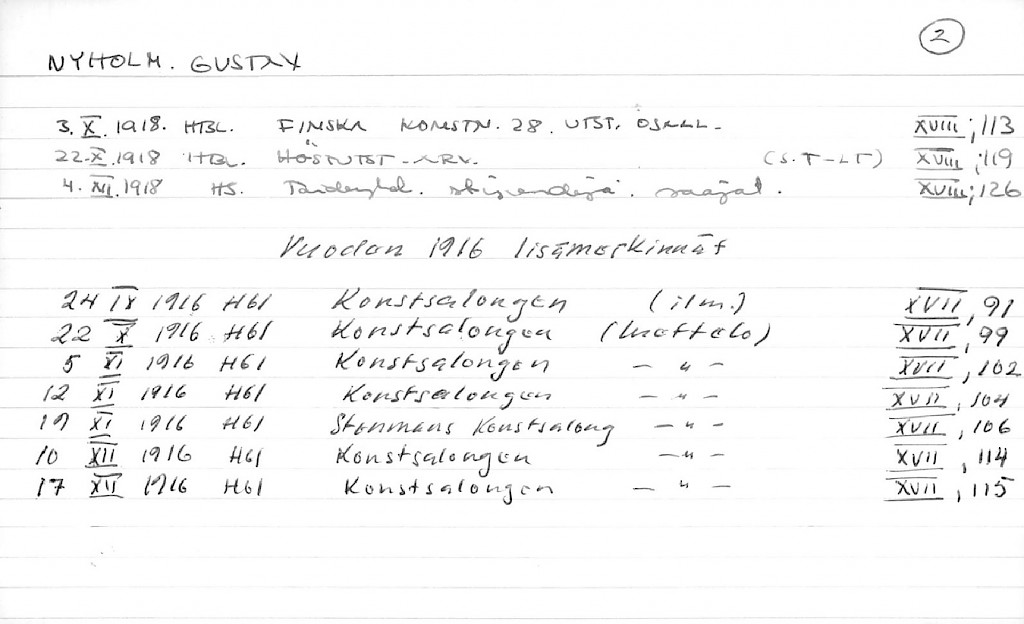 2
NYHOLM. GUSTAV
3. X. 1918. HBL. FINSKA KONSTN. 28. UTST. ÖSALL. XVIII; 113
22. X. 1918 HBL. HÖSTUTST-ARV. (S. T-LT) XVIII; 119
4. XII. 1918 HS. stipendejä. saajat. XVIII; 126
Vuoden 1916 lisämerkinnät
24 IX 1916 Hbl Konstsalongen (ilm.) XVII, 91
22 X 1916 Hbl Konstsalongen (luettelo) XVII, 99
5 XI 1916 Hbl Konstsalongen — " — XVII, 102
12 XI 1916 Hbl Konstsalongen — " — XVII, 104
19 XI 1916 Hbl Stenmans Konstsalong — " — XVII, 106
10 XII 1916 Hbl Konstsalongen — " — XVII, 114
17 XII 1916 Hbl Konstsalongen — " — XVII, 115